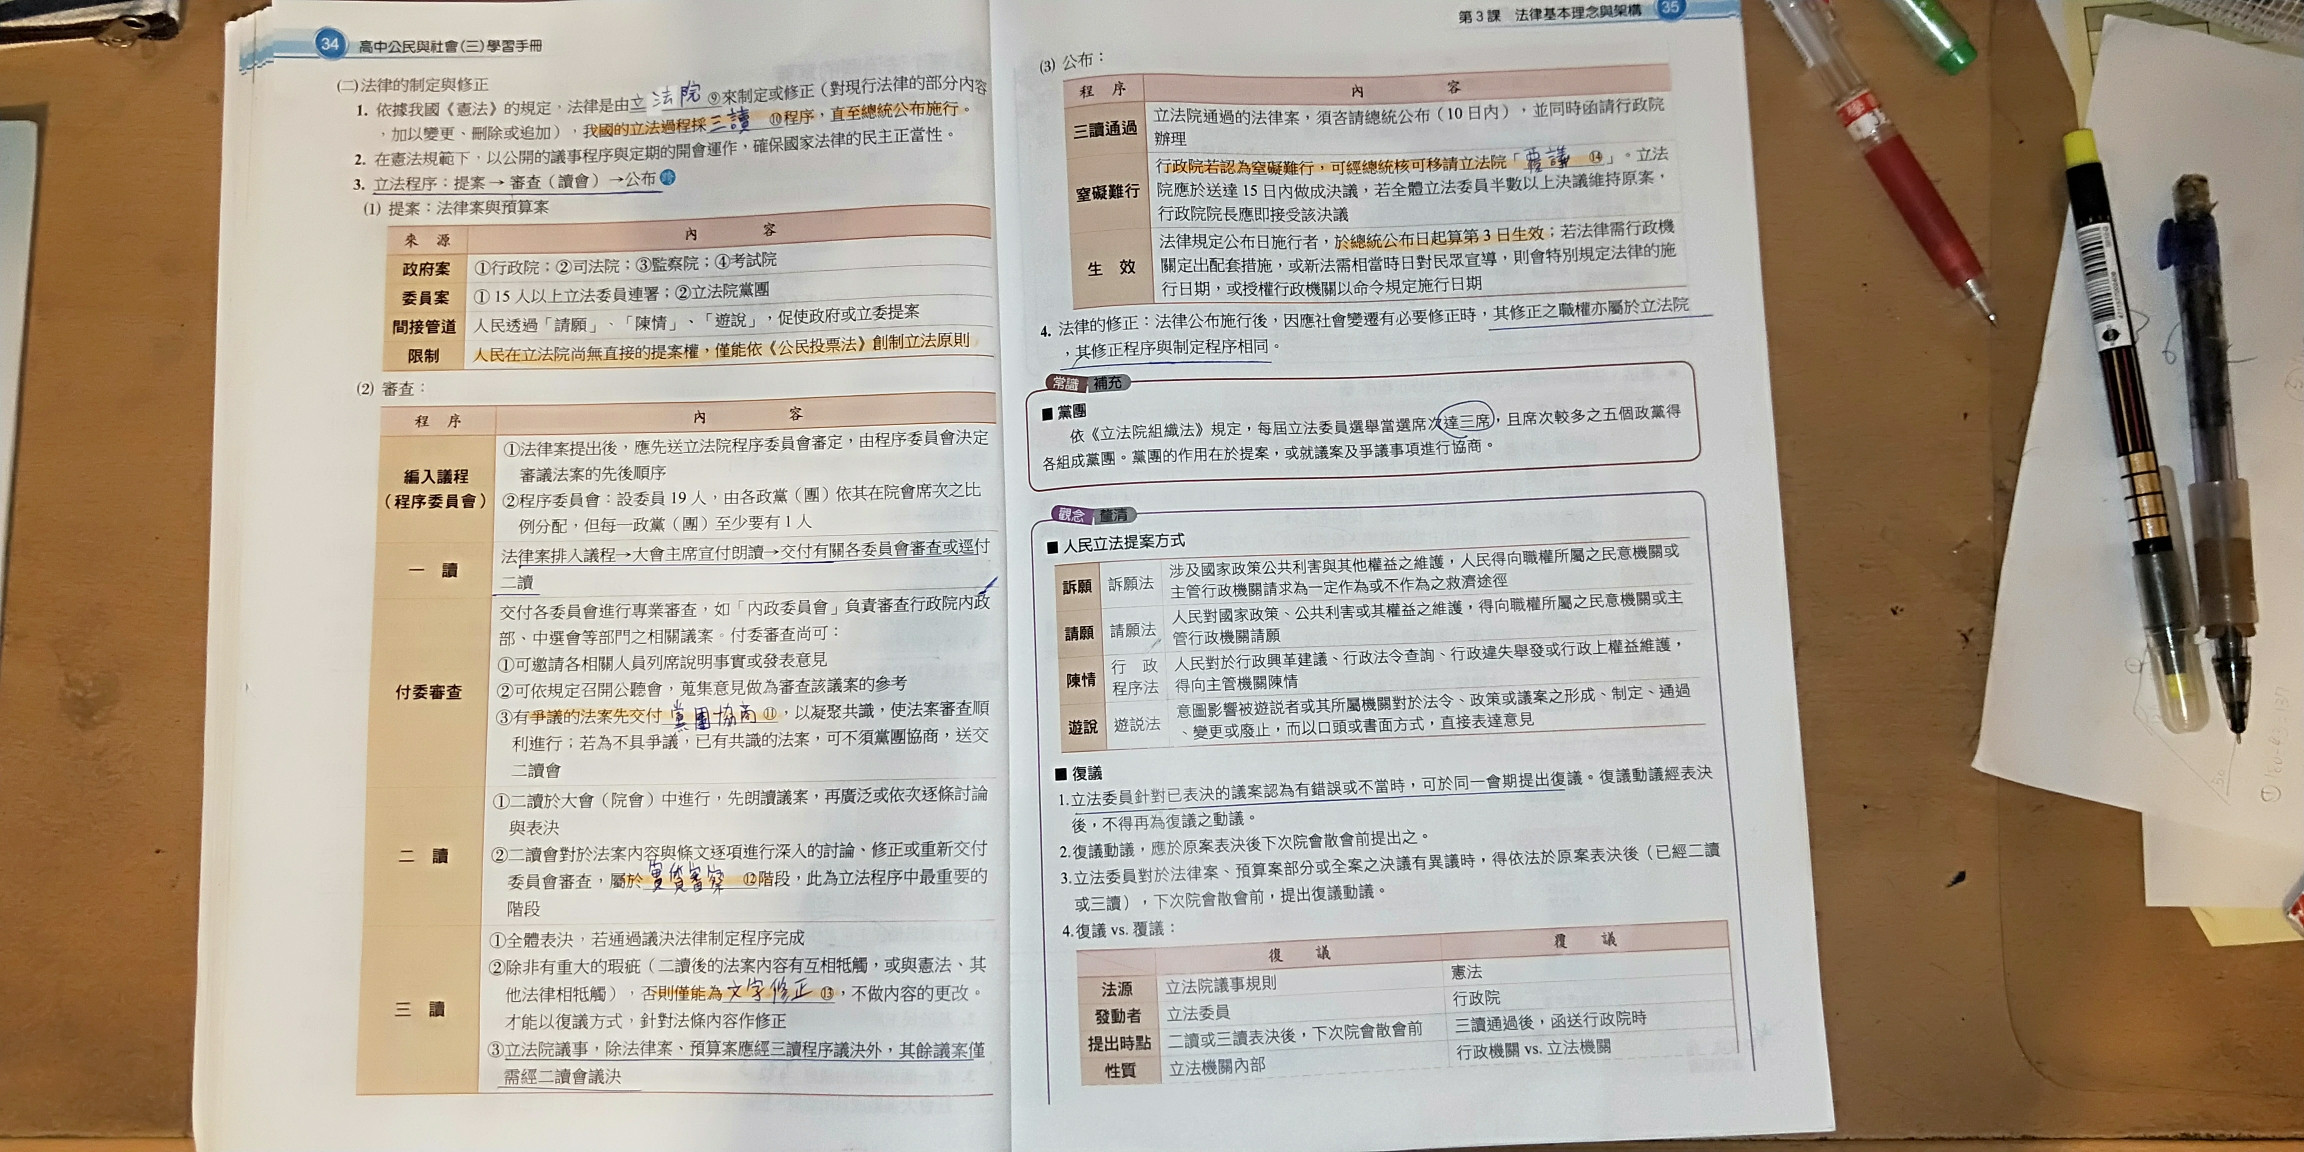 34 高中公民與社會(三)學習手冊
(二)法律的制定與修正
1. 依據我國《憲法》的規定，法律是由立法院⑨來制定或修正（對現行法律的部分內容
，加以變更、刪除或追加），我國的立法過程採三讀⑩程序，直至總統公布施行。
2. 在憲法規範下，以公開的議事程序與定期的開會運作，確保國家法律的民主正當性。
3. 立法程序：提案→審查（讀會）→公布
(1) 提案：法律案與預算案
來 源 內 容
政府案 ①行政院；②司法院；③監察院；④考試院
委員案 ① 15 人以上立法委員連署；②立法院黨團
間接管道 人民透過「請願」、「陳情」、「遊說」，促使政府或立委提案
限制 人民在立法院尚無直接的提案權，僅能依《公民投票法》創制立法原則
(2) 審查：
程 序 內 容
編入議程
（程序委員會）
①法律案提出後，應先送立法院程序委員會審定，由程序委員會決定
審議法案的先後順序
②程序委員會：設委員 19 人，由各政黨（團）依其在院會席次之比
例分配，但每一政黨（團）至少要有 1 人
一 讀
法律案排入議程→大會主席宣付朗讀→交付有關各委員會審查或逕付
二讀
付委審查
交付各委員會進行專業審查，如「內政委員會」負責審查行政院內政
部、中選會等部門之相關議案。付委審查尚可：
①可邀請各相關人員列席說明事實或發表意見
②可依規定召開公聽會，蒐集意見做為審查該議案的參考
③有爭議的法案先交付黨團協商⑪，以凝聚共識，使法案審查順
利進行；若為不具爭議，已有共識的法案，可不須黨團協商，送交
二讀會
二 讀
①二讀於大會（院會）中進行，先朗讀議案，再廣泛或依次逐條討論
與表決
②二讀會對於法案內容與條文逐項進行深入的討論、修正或重新交付
委員會審查，屬於實質審察⑫階段，此為立法程序中最重要的
階段
三 讀
①全體表決，若通過議決法律制定程序完成
②除非有重大的瑕疵（二讀後的法案內容有互相牴觸，或與憲法、其
他法律相牴觸），否則僅能為文字修正⑬，不做內容的更改。
才能以復議方式，針對法條內容作修正
③立法院議事，除法律案、預算案應經三讀程序議決外，其餘議案僅
需經二讀會議決
第 3 課 法律基本理念與架構 35
(3) 公布：
程 序 內 容
三讀通過
立法院通過的法律案，須咨請總統公布（10 日內），並同時函請行政院
辦理
窒礙難行
行政院若認為窒礙難行，可經總統核可移請立法院「覆議⑭」。立法
院應於送達 15 日內做成決議，若全體立法委員半數以上決議維持原案，
行政院院長應即接受該決議
生 效
法律規定公布日施行者，於總統公布日起算第 3 日生效；若法律需行政機
關定出配套措施，或新法需相當時日對民眾宣導，則會特別規定法律的施
行日期，或授權行政機關以命令規定施行日期
4. 法律的修正：法律公布施行後，因應社會變遷有必要修正時，其修正之職權亦屬於立法院
，其修正程序與制定程序相同。
常識 補充
■ 黨團
依《立法院組織法》規定，每屆立法委員選舉當選席次達三席，且席次較多之五個政黨得
各組成黨團。黨團的作用在於提案，或就議案及爭議事項進行協商。
觀念 釐清
■ 人民立法提案方式
訴願 訴願法 涉及國家政策公共利害與其他權益之維護，人民得向職權所屬之民意機關或
主管行政機關請求為一定作為或不作為之救濟途徑
請願 請願法 人民對國家政策、公共利害或其權益之維護，得向職權所屬之民意機關或主
管行政機關請願
陳情 行 政 人民對於行政興革建議、行政法令查詢、行政違失舉發或行政上權益維護，
程序法 得向主管機關陳情
遊說 遊說法 意圖影響被遊說者或其所屬機關對於法令、政策或議案之形成、制定、通過
、變更或廢止，而以口頭或書面方式，直接表達意見
■ 復議
1.立法委員針對已表決的議案認為有錯誤或不當時，可於同一會期提出復議。復議動議經表決
後，不得再為復議之動議。
2.復議動議，應於原案表決後下次院會散會前提出之。
3.立法委員對於法律案、預算案部分或全案之決議有異議時，得依法於原案表決後（已經二讀
或三讀），下次院會散會前，提出復議動議。
4.復議 vs. 覆議：
復 議 覆 議
法源 立法院議事規則 憲法
發動者 立法委員 行政院
提出時點 二讀或三讀表決後，下次院會散會前 三讀通過後，函送行政院時
性質 立法機關內部 行政機關 vs. 立法機關